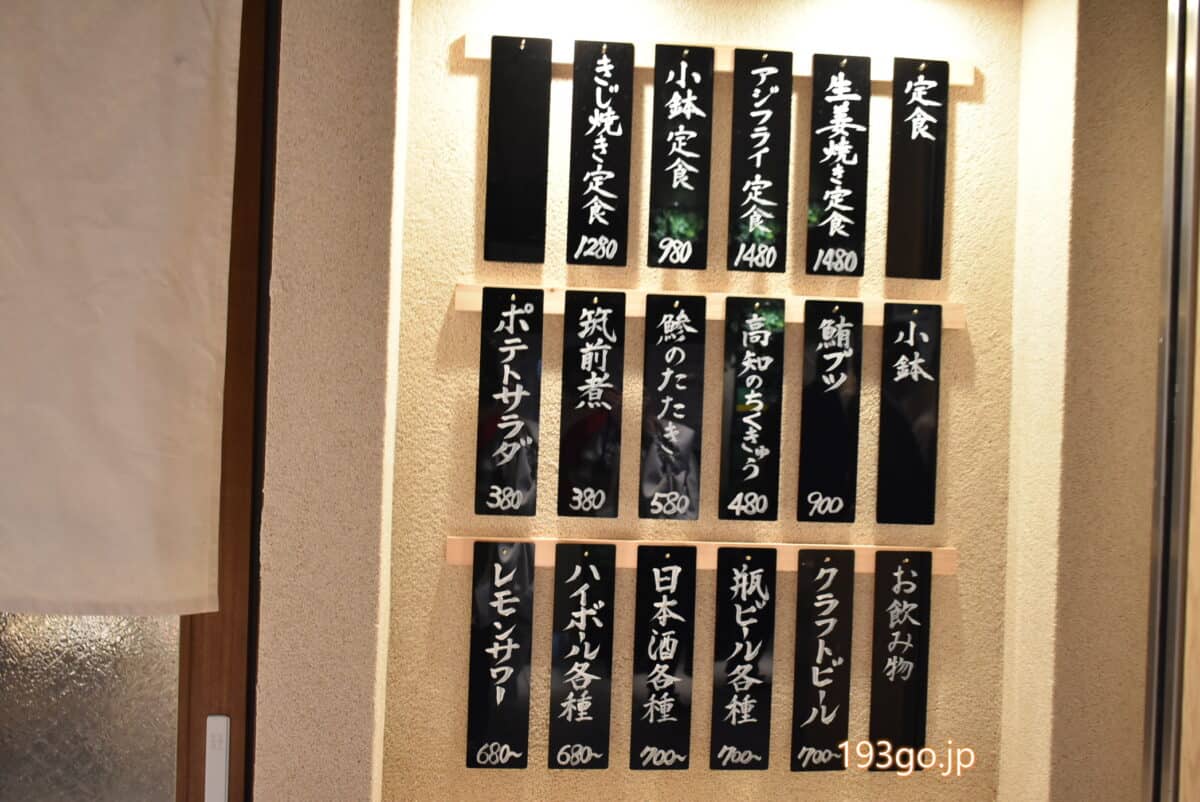 定食
生姜焼き定食
1480
アジフライ定食
1480
小鉢定食
980
きじ焼き定食
1280
小鉢
鮪ブツ
900
高知のちくきゅう
480
鯵のたたき
580
筑前煮
380
ポテトサラダ
380
お飲み物
クラフトビール
700~
瓶ビール各種
700~
日本酒各種
700~
ハイボール各種
680~
レモンサワー
680~
193go.jp